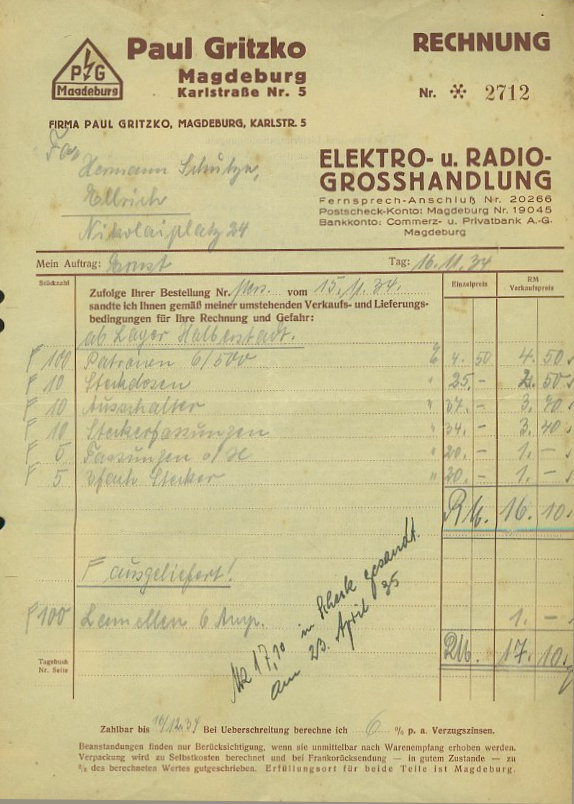 P G
Magdeburg
Paul Gritzko
Magdeburg
Karlstraße Nr. 5
RECHNUNG
Nr. ❊ 2712
FIRMA PAUL GRITZKO, MAGDEBURG, KARLSTR. 5
Hermann Schütze,
Ellrich
Nikolaiplatz 24
ELEKTRO- u. RADIO-
GROSSHANDLUNG
Fernsprech-Anschluß Nr. 20266
Postscheck-Konto: Magdeburg Nr. 19045
Bankkonto: Commerz- u. Privatbank A.-G.
Magdeburg
Mein Auftrag: Tag: 16.11.34
Stückzahl
Zufolge Ihrer Bestellung Nr. vom 15.11.34.
sandte ich Ihnen gemäß meiner umstehenden Verkaufs- und Lieferungs-
bedingungen für Ihre Rechnung und Gefahr:
Einzelpreis
RM
Verkaufspreis
ab Lager Halberstadt.
F 100 Patronen 6/500 % 4. 50 4. 50
F 10 Steckdosen " 25,- 2. 50
F 10 Ausschalter " 37.- 3. 70
F 10 Steckerfassungen " 34.- 3. 40
F 5 Fassungen " 20.- 1. -
F 5 3fach Stecker " 20.- 1. -
RM. 16. 10.
F ausgeliefert!
F 100 Lamellen 6 Amp. 1. -
RM. 17. 10.
17,10 in Scheck gesandt.
am 23. April 35
Tagebuch
Nr. Seite
Zahlbar bis 14/12.34 Bei Ueberschreitung berechne ich 6 % p. a. Verzugszinsen.
Beanstandungen finden nur Berücksichtigung, wenn sie unmittelbar nach Warenempfang erhoben werden.
Verpackung wird zu Selbstkosten berechnet und bei Frankorücksendung — in gutem Zustande — zu
⅔ des berechneten Wertes gutgeschrieben. Erfüllungsort für beide Teile ist Magdeburg.